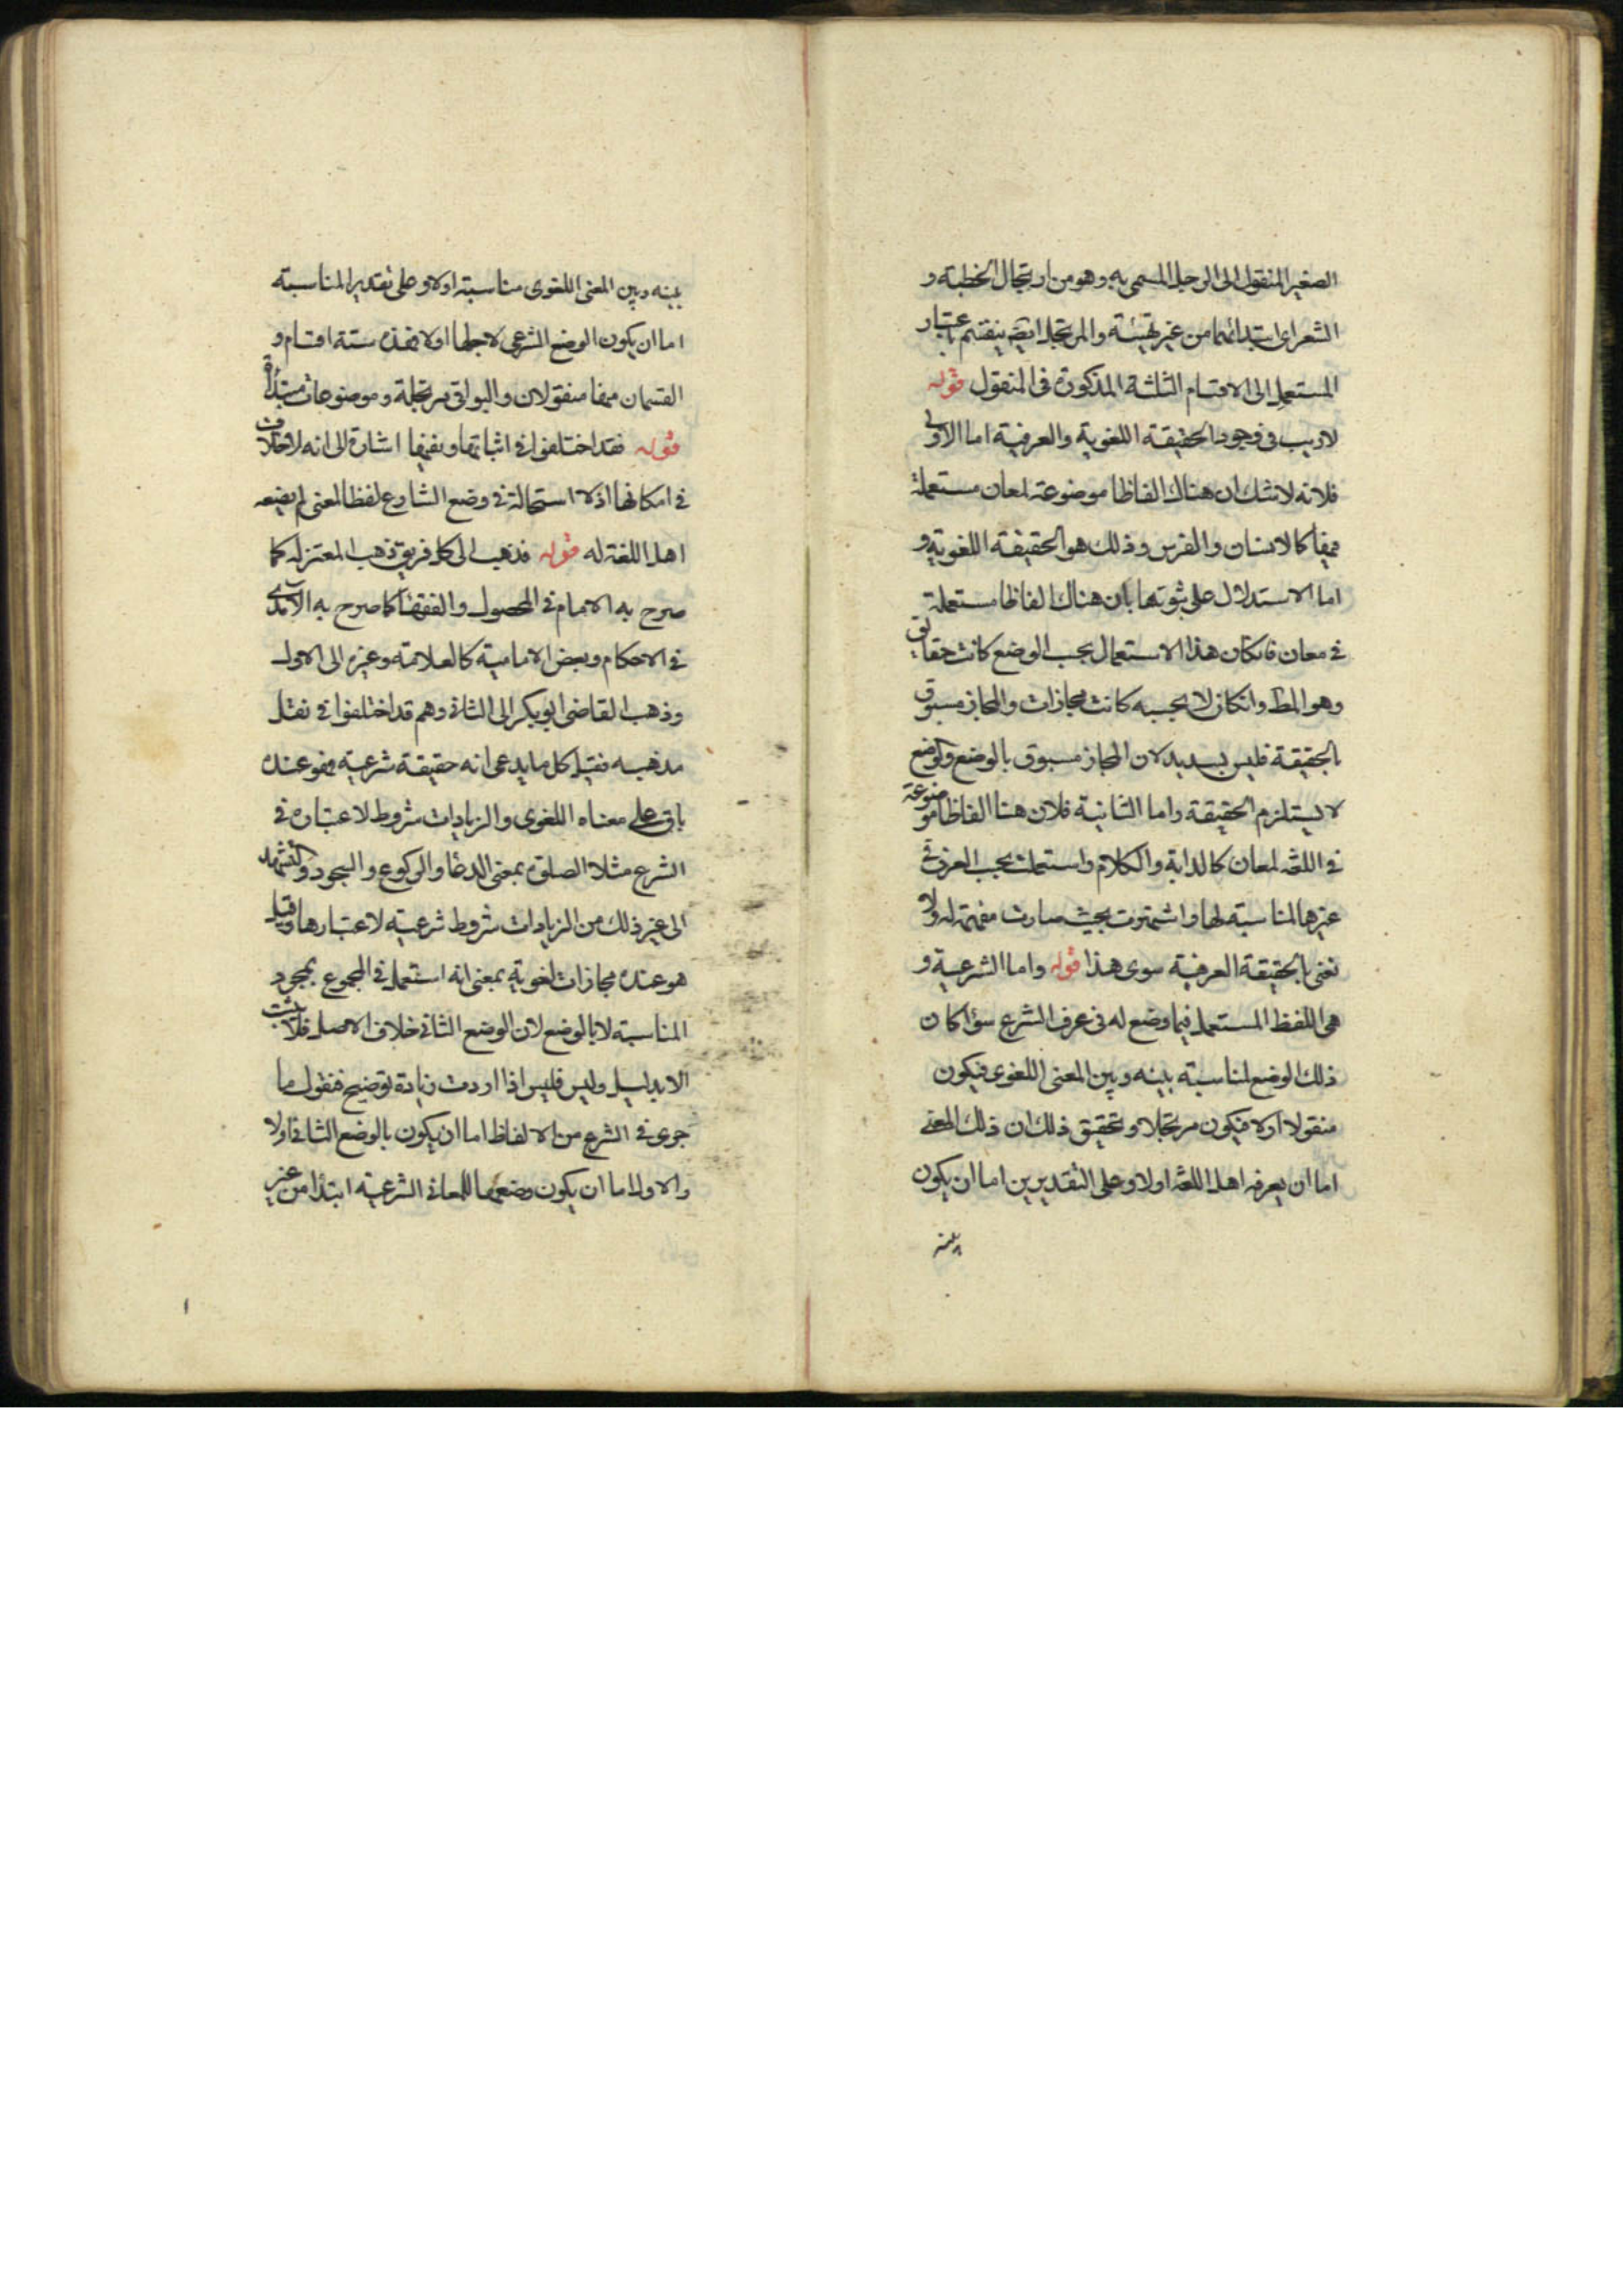 الصغير المنقول الى الرجل المسمى به وهو من ارتجال الخطبة و
الشعر اى ابتدائهما من غير تهيئة والمرتجل ايضا ينقسم باعتبار
المستعمل الى الاقسام الثلثة المذكورة فى المنقول قوله
لا ريب فى وجود الحقيقة اللغوية والعرفية اما الاولى
فلانه لا شك ان هناك الفاظا موضوعة لمعان مستعملة
فيها كالانسان والفرس وذلك هو الحقيقة اللغوية و
اما الاستدلال على ثبوتها بان هناك الفاظا مستعملة
فى معان فانكان هذا الاستعمال بحسب الوضع كانت حقايق
وهو المط وانكان لا بحسبه كانت مجازات والمجاز مسبوق
بالحقيقة فليس بسديد لان المجاز مسبوق بالوضع والوضع
لا يستلزم الحقيقة واما الثانية فلان هنا الفاظا موضوعة
فى اللغة لمعان كالدابة والكلام واستعملت بحسب العرف فى
غيرها لمناسبته لها واشتهرت بحيث صارت مفهمة له ولا
نعنى بالحقيقة العرفية سوى هذا قوله واما الشرعية و
هى اللفظ المستعمل فيما وضع له فى عرف الشرع سواء كان
ذلك الوضع لمناسبته بينه وبين المعنى اللغوى فيكون
منقولا اولا فيكون مرتجلا وتحقيق ذلك ان ذلك المعنى
اما ان يعرفه اهل اللغة اولا وعلى التقديرين اما ان يكون
بينه
بينه وبين المعنى اللغوى مناسبته اولا وعلى تقدير المناسبته
اما ان يكون الوضع الشرعى لاجلها اولا فهذه ستة اقسام و
القسمان منها منقولان والبواقى مرتجلة وموضوعات مبتدأة
قوله فقد اختلفوا فى اثباتها ونفيها اشارة الى انه لا خلاف
فى امكانها اذ لا استحالة فى وضع الشارع لفظا لمعنى لم يضعه
اهل اللغة له قوله فذهب الى كل فريق ذهب المعتزله كما
صرح به الامام فى المحصول والفقهاء كما صرح به الآمدى
فى الاحكام وبعض الامامية كالعلامة وغيره الى الاول
وذهب القاضى ابو بكر الى الثانى وهم قد اختلفوا فى نقل
مذهبه فقيل كل ما يدعى انه حقيقة شرعية فهو عنده
باق على معناه اللغوى والزيادات شروط لاعتباره فى
الشرع مثلا الصلوة بمعنى الدعاء والركوع والسجود والتشهد
الى غير ذلك من الزيادات شروط شرعيته لاعتبارها وقيل
هو عنده مجازات لغوية بمعنى انه استعمل فى المجموع بمجرد
المناسبته لا بالوضع لان الوضع الثانى خلاف الاصل فلا يثبت
الا بدليل وليس فليس اذا اردت زيادة توضيح فنقول ما
جرى فى الشرع من الالفاظ اما ان يكون بالوضع الثانى اولا
والاول اما ان يكون وضعها للمعانى الشرعية ابتداء من غير